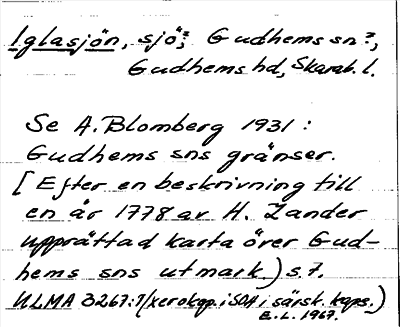 Iglasjön, sjö?; Gudhems sn?,
Gudhems hd, Skarab. l.
Se A. Blomberg 1931:
Gudhems sns gränser.
[Efter en beskrivning till
en år 1778 av H. Zander
upprättad karta över Gud-
hems sns utmark.) s. 7.
ULMA 3267:1 (xerokop. i SOA i särsk. kaps.)
E.L. 1967.